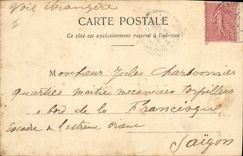 Voie étrangère
CARTE POSTALE
Ce côté est exclusivement réservé à l'adresse
Monsieur Jules Charbonnier
quartier maître mécanicien torpilleur
à bord de la Francisque
Escadre de l'extrême orient
Saïgon